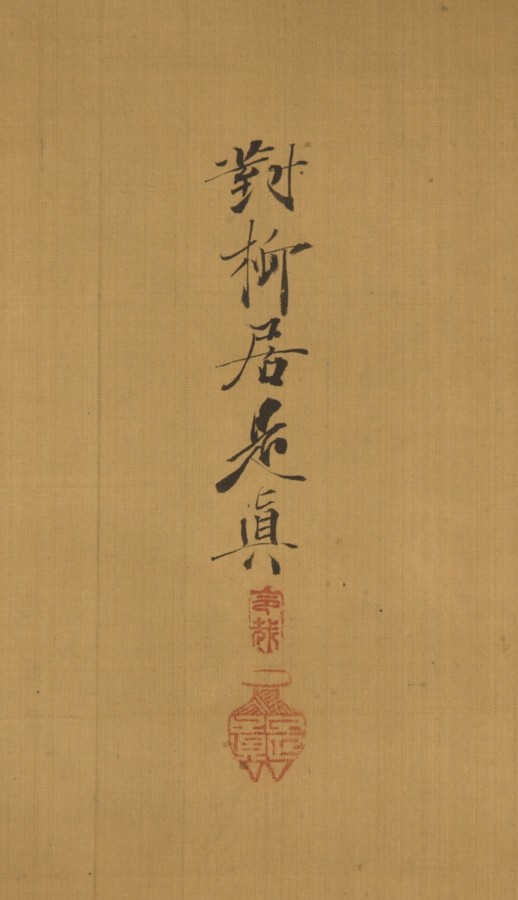 對柳居是眞